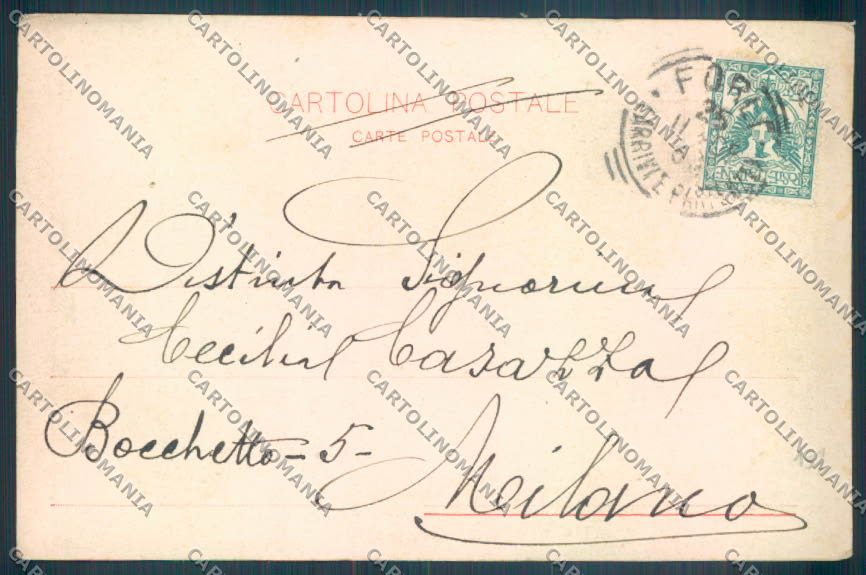 CARTOLINA POSTALE
CARTE POSTALE
Distinta Signorina
Cecilia Casazza
Bocchetto - 5 -
Milano
CARTOLINOMANIA